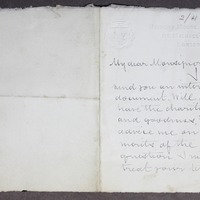 2/4
My dear Monsignor
send you an intro
document. Will
have the charity
and goodness
advise me on
merits of the
question I
treat your